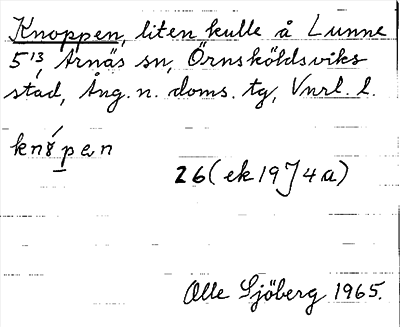 Knoppen, liten kulle å Lunne
5¹³, Arnäs sn, Örnsköldsviks
stad, Ång. n. doms. tg, Vnrl. l.
knǿpen
26 (ek 19J4a)
Olle Sjöberg 1965.